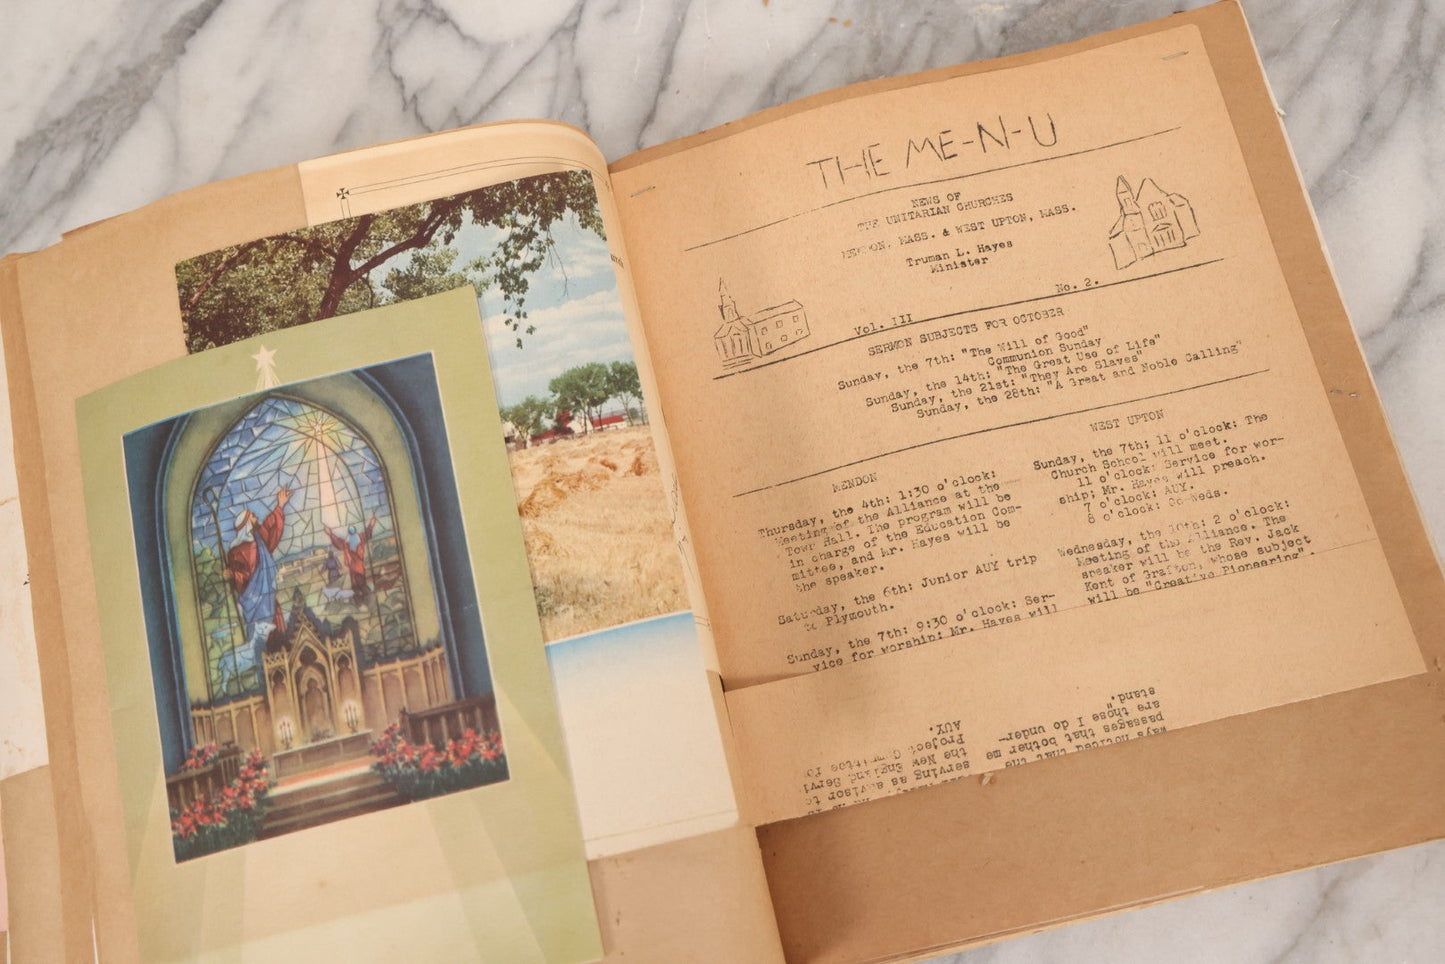 THE ME-N-U
NEWS OF
THE UNITARIAN CHURCHES
MENDON, MASS. & WEST UPTON, MASS.
Truman L. Hayes
Minister
Vol. III
No. 2.
SERMON SUBJECTS FOR OCTOBER
Sunday, the 7th: "The Will of Good"
Communion Sunday
Sunday, the 14th: "The Great Use of Life"
Sunday, the 21st: "They Are Slaves"
Sunday, the 28th: "A Great and Noble Calling"
MENDON
Thursday, the 4th: 1:30 o'clock:
Meeting of the Alliance at the
Town Hall. The program will be
in charge of the Education Com-
mittee, and Mr. Hayes will be
the speaker.
Saturday, the 6th: Junior AUY trip
to Plymouth.
Sunday, the 7th: 9:30 o'clock: Ser-
vice for worship; Mr. Hayes will
WEST UPTON
Sunday, the 7th; 11 o'clock: The
Church School will meet.
11 o'clock: Service for wor-
ship; Mr. Hayes will preach.
7 o'clock: AUY.
8 o'clock: Co-Weds.
Wednesday, the 10th: 2 o'clock:
Meeting of the Alliance. The
speaker will be the Rev. Jack
Kent of Grafton, whose subject
will be "Creative Pioneering".
ways noticed that the
passages that bother me
are those I do under-
stand."
serving as advisor to
the New England Servi
Project Committee for
AUY.